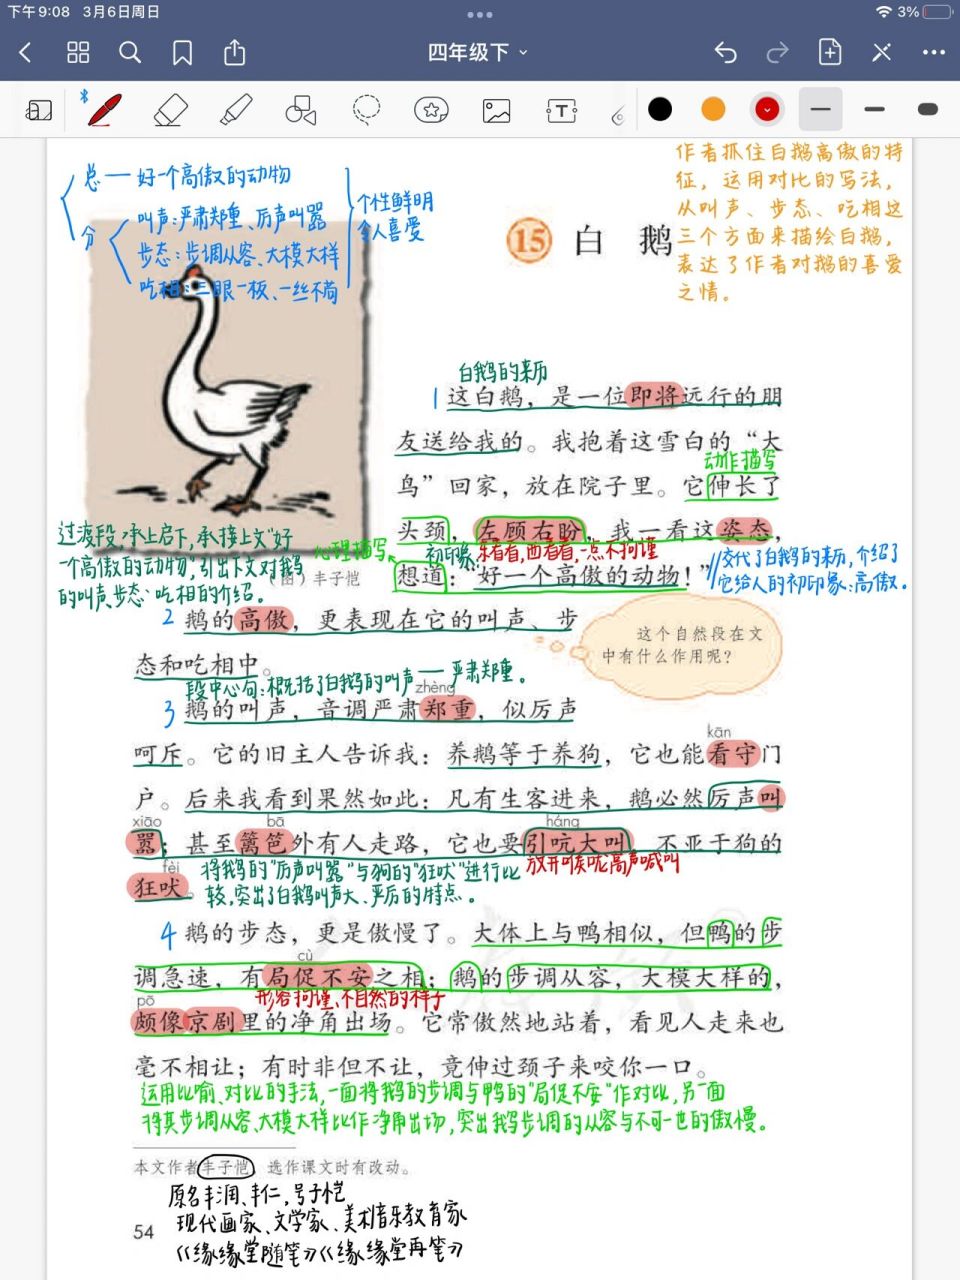 下午9:08 3月6日周日
3%
四年级下
总——好一个高傲的动物
分
叫声:严肃郑重、厉声叫嚣
步态:步调从容、大模大样
吃相:三眼一板、一丝不苟
个性鲜明
令人喜爱
作者抓住白鹅高傲的特
征,运用对比的写法,
从叫声、步态、吃相这
三个方面来描绘白鹅,
表达了作者对鹅的喜爱
之情。
15 白 鹅
白鹅的来历
1 这白鹅,是一位即将远行的朋
友送给我的。我抱着这雪白的“大
动作描写
鸟”回家,放在院子里。它伸长了
头颈,左顾右盼,我一看这姿态,
心理描写
初印象
东看看,西看看,一点不拘谨
想道:“好一个高傲的动物!”
//交代了白鹅的来历,介绍了
它给人的初印象:高傲。
过渡段,承上启下,承接上文“好
一个高傲的动物”,引出下文对鹅
的叫声、步态、吃相的介绍。
(图)丰子恺
2 鹅的高傲,更表现在它的叫声、步
态和吃相中。
这个自然段在文
中有什么作用呢?
段中心句:概括了白鹅的叫声——严肃郑重。
zhèng
3 鹅的叫声,音调严肃郑重,似厉声
kān
呵斥。它的旧主人告诉我:养鹅等于养狗,它也能看守门
户。后来我看到果然如此:凡有生客进来,鹅必然厉声叫
xiāo bā háng
嚣;甚至篱笆外有人走路,它也要引吭大叫,不亚于狗的
fèi
狂吠。
将鹅的“厉声叫嚣”与狗的“狂吠”进行比
较,突出了白鹅叫声大、严厉的特点。
放开喉咙高声喊叫
4 鹅的步态,更是傲慢了。大体上与鸭相似,但鸭的步
cù
调急速,有局促不安之相;鹅的步调从容,大模大样的,
形容拘谨、不自然的样子
pō
颇像京剧里的净角出场。它常傲然地站着,看见人走来也
毫不相让;有时非但不让,竟伸过颈子来咬你一口。
运用比喻、对比的手法,一面将鹅的步调与鸭的“局促不安”作对比,另一面
将其步调从容、大模大样比作净角出场,突出鹅步调的从容与不可一世的傲慢。
本文作者丰子恺,选作课文时有改动。
原名丰润、丰仁,号子恺
现代画家、文学家、美术音乐教育家
《缘缘堂随笔》《缘缘堂再笔》
54